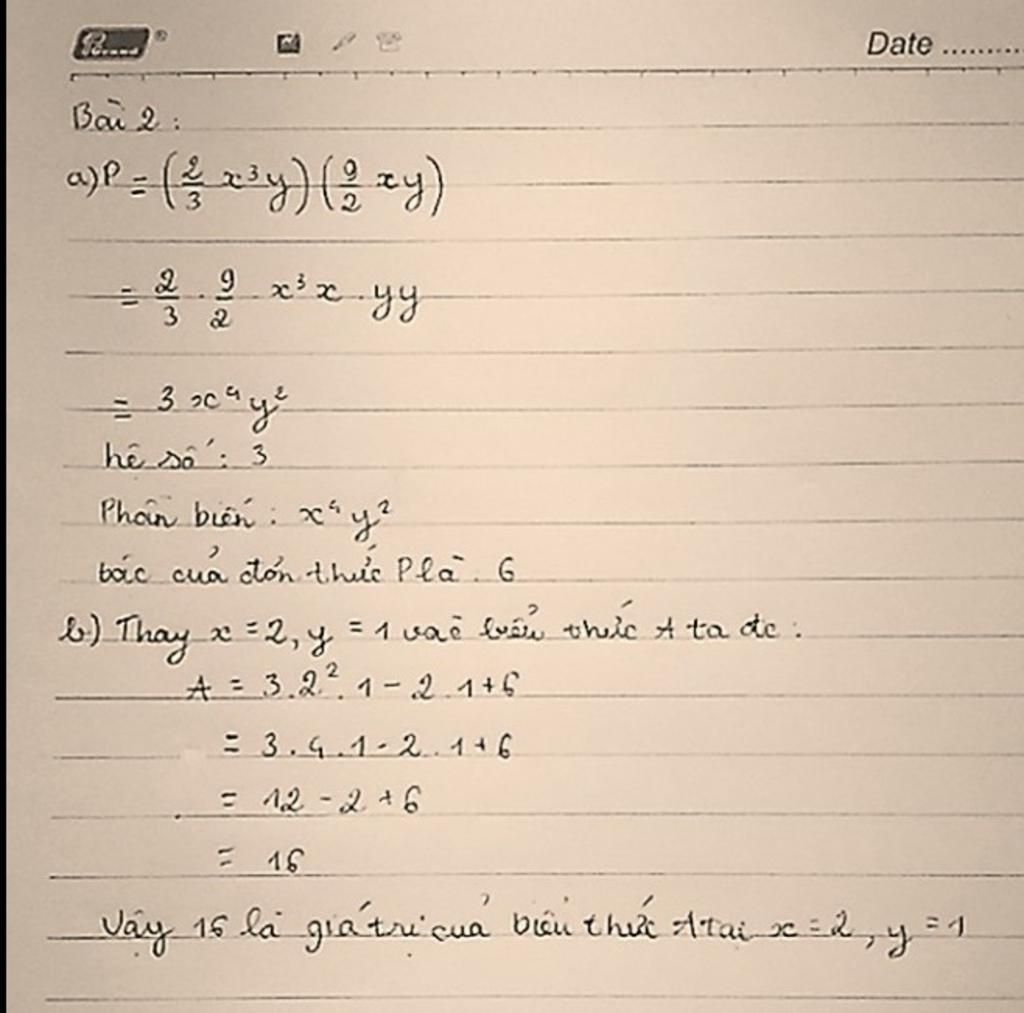 Brand ® Date ..........
Bài 2 :
a) P = (2/3 x³y)(9/2 xy)
= 2/3 . 9/2 . x³x . yy
= 3x⁴y²
hệ số : 3
Phần biến : x⁴y²
bậc của đơn thức P là . 6
b) Thay x = 2, y = 1 vào biểu thức A ta đc :
A = 3.2².1 - 2.1+6
= 3.4.1 - 2.1+6
= 12 - 2 + 6
= 16
Vậy 16 là giá trị của biểu thức A tại x = 2, y = 1